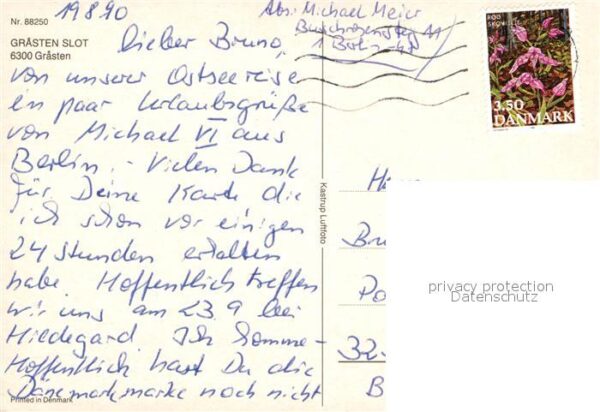 19 8 90
Nr. 88250
GRÅSTEN SLOT
6300 Gråsten
Abs. Michael Meier
1 Berlin-47
RØD SKOVLILJE
3.50
DANMARK
Lieber Bruno,
von unserer Ostseereise
ein paar Urlaubsgrüße
von Michael VI aus
Berlin. - Vielen Dank
für Deine Karte die
ich schon vor einigen
24 Stunden erhalten
habe Hoffentlich treffen
wir uns am 23.9 bei
Hildegard Ich komme -
Hoffentlich hast Du die
Dänemarkmarke noch nicht
Printed in Denmark
Kastrup Luftfoto
H
Br
Po
32-
B
privacy protection
Datenschutz